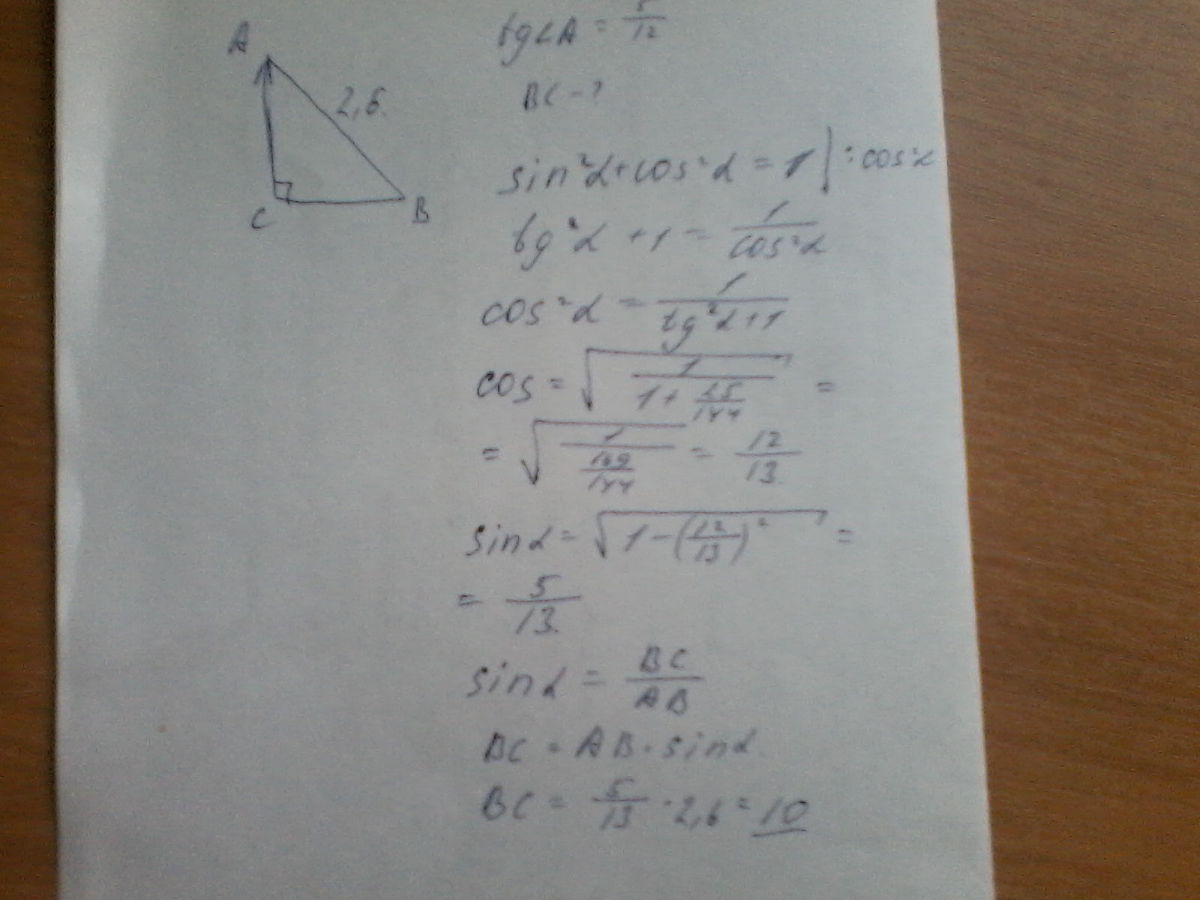 A
2,6.
C
B
tg∠A = 5/12
BC - ?
sin²α + cos²α = 1 | : cos²α
tg²α + 1 = 1/cos²α
cos²α = 1/(tg²α + 1)
cos = √(1/(1 + 25/144)) =
= √(1/(169/144)) = 12/13
sinα = √(1 - (12/13)²) =
= 5/13.
sinα = BC/AB
BC = AB · sinα
BC = 5/13 · 2,6 = 10